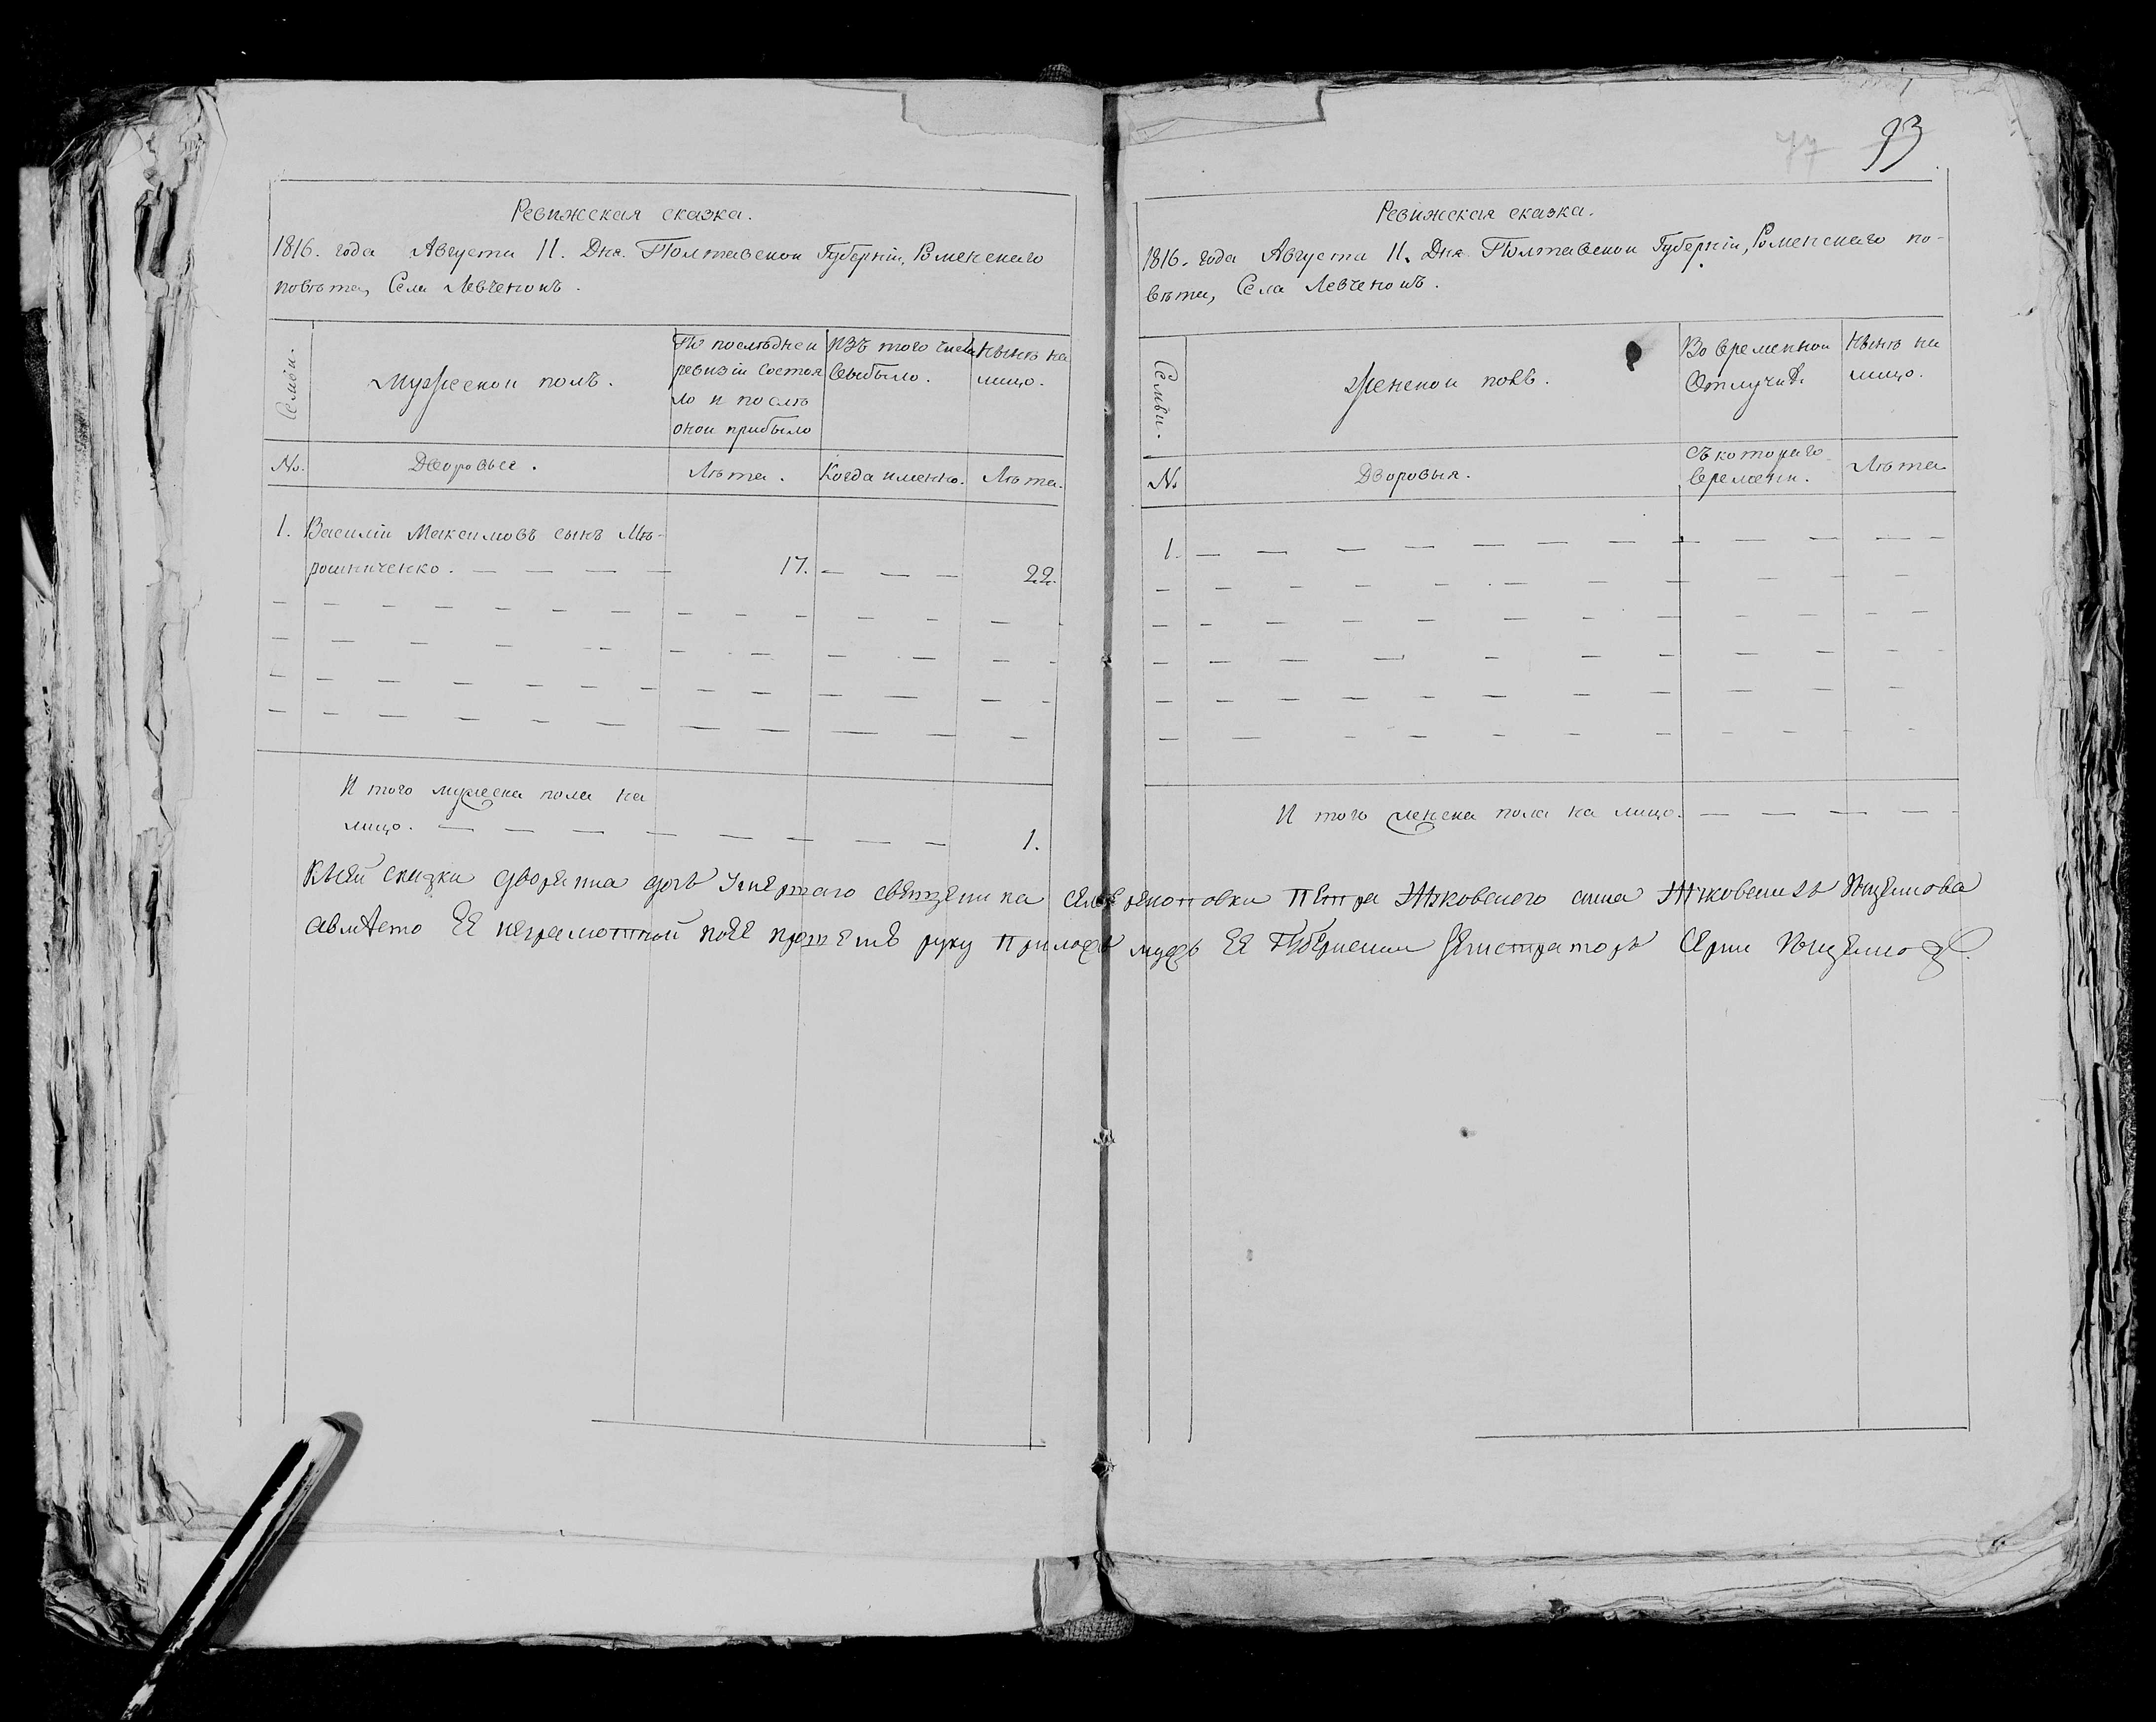 Ревижская сказка.
1816. года Августа 11. Дня. Полтавской Губерніи, Роменского
повѣта, Села Левченокъ.
Семьи.
Мужеской полъ.
По последней
ревизіи состоя
ло и послѣ
оной прибыло
Изъ того числа
выбыло.
Нынѣ на
лицо.
№.
Дворовые.
Лѣта.
Когда именно.
Лѣта.
1. Василій Максимовъ сынъ Мѣ-
рошниченко. 17. 22.
И того мужеска пола на
лицо. 1.
77 93
Ревижская сказка.
1816. года Августа 11. Дня Полтавской Губерніи, Роменскаго по-
вѣта, Села Левченокъ.
Семьи.
Женской полъ.
Во временной
Отлучкѣ
Нынѣ на
лицо.
№
Дворовыя.
Съ котораго
времени.
Лѣта
1.
И того женска пола на лицо.
Ксей сказки дворянка дочь умершаго священика Петра
а вместо Ее неграмотной по Ее прозбѣ руку приложилъ мужъ Ее Губернский Регистраторъ